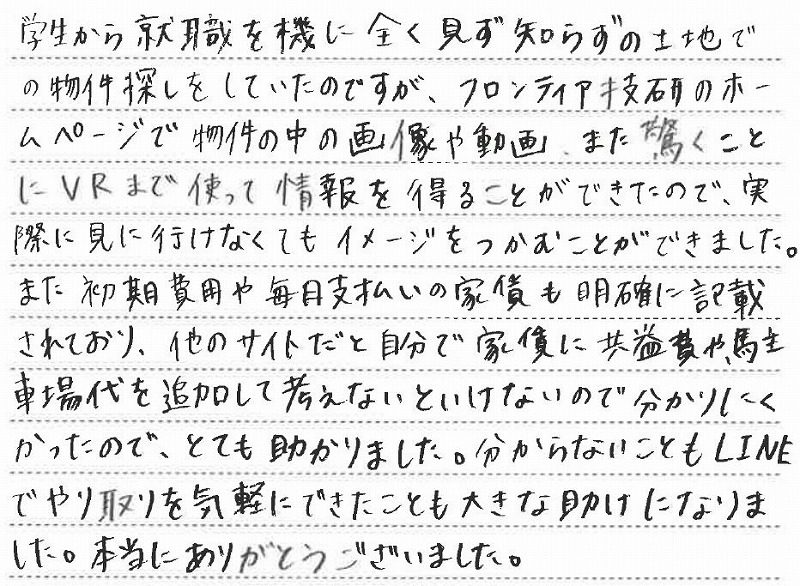 学生から就職を機に全く見ず知らずの土地で
の物件探しをしていたのですが、フロンティア技研のホー
ムページで物件の中の画像や動画、また驚くこと
にVRまで使って情報を得ることができたので、実
際に見に行けなくてもイメージをつかむことができました。
また初期費用や毎月支払いの家賃も明確に記載
されており、他のサイトだと自分で家賃に共益費や、駐
車場代を追加して考えないといけないので分かりにく
かったので、とても助かりました。分からないこともLINE
でやり取りを気軽にできたことも大きな助けになりま
した。本当にありがとうございました。